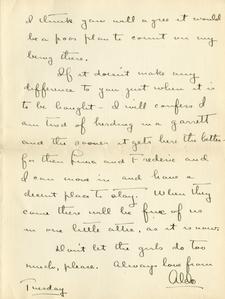 I think you will agree it would
be a poor plan to count on my
being there.
If it doesn't make any
difference to you just when it is
to be bought - I will confess I
am tired of herding in a garrett
and the sooner it gets here the better
for then Anna and Frederic and
I can move in and have a
decent place to stay. When they
come there will be five of us
in one little attic, as it is now.
Don't let the girls do too
much, please. Always love from
Aldo
Tuesday